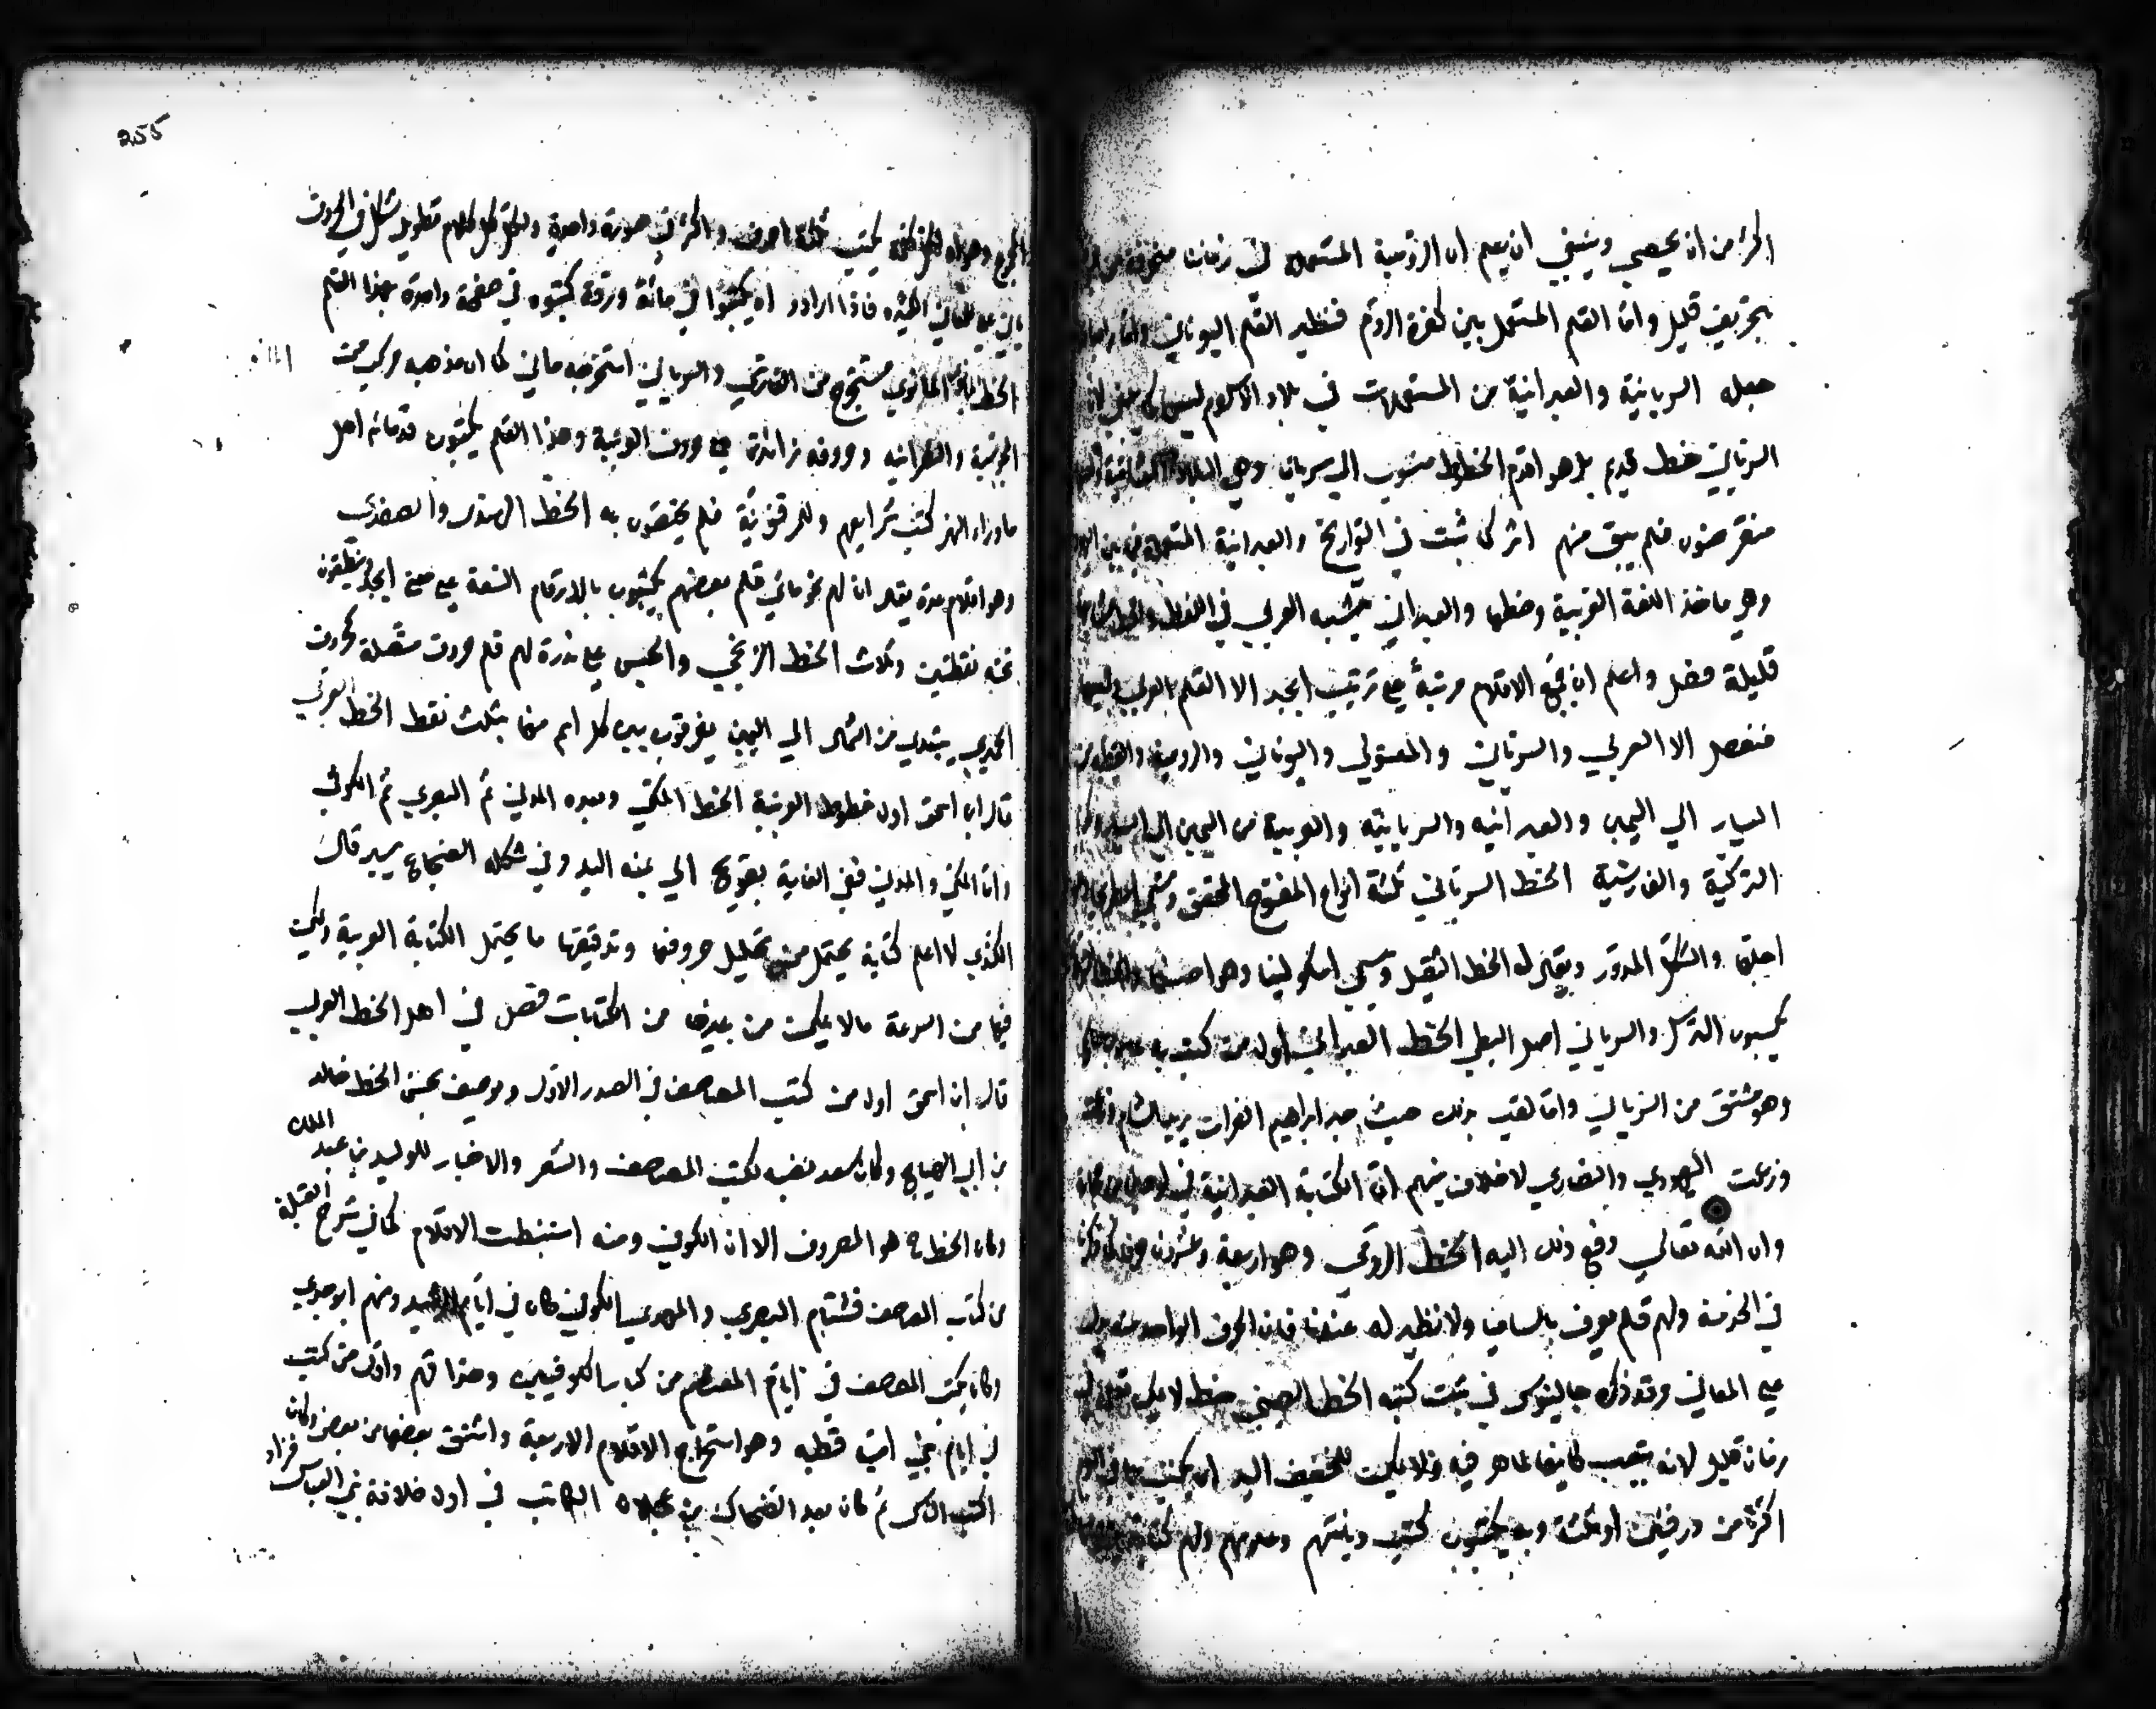 اكثر من ان يحصى وينبغي ان يعلم ان الرومية المستعملة في زماننا منحرفة عن
بتحريف قليل واما القلم المستعمل بين كفرة الروم فنظير القلم اليوناني
جعله السريانية والعبرانية من المستعملات في بلاد الاسلام ليس كما ينبغي لان
السرياني خط قديم بل هو اقدم الخطوط منسوب الى سوريان وهي البلاد الشامية
منقرضون فلم يبق منهم اثر كما ثبت في التواريخ والعبرانية المستعملة فيما بين اليهود
وهي ماخذ اللغة العربية وخطها والعبراني يشبه العربي في اللفظ والخط
قليلة فصل واعلم ان جميع الاقلام مرتبة على ترتيب ابجد الا القلم العربي وجميعها
منفصل الا العربي والسرياني والمغولي واليوناني والرومية والقبطي من
اليسار الى اليمين والعبرانية والسريانية والعربية من اليمين الى اليسار وكذا
التركية والفارسية الخط السرياني ثلثة انواع المفتوح المحقق ويسمى
اجلها والشكل المدور ويقال له الخط الثقيل ويسمى اسكولينا وهو احسنها
يكتبون الترسل والسرياني اصل النبطي الخط العبراني اول من كتب به
وهو مشتق من السرياني وانما لقب بذلك حيث عبر ابراهيم الفرات يريد الشام
وزعمت اليهود والنصارى لاخلاف بينهم ان الكتابة العبرانية في لوحين من حجارة
وان الله تعالى دفع ذلك اليه الخط الرومي وهو اربعة وعشرون حرفا كما ذكرنا
في المقدمة ولهم قلم يعرف بالساميا ولا نظير له عندنا فان الحرف الواحد منه يدل
على المعاني وقد ذكره جالينوس في ثبت كتبه الخط الصيني خط لا يمكن تعلمه في
زمان قليل لانه يتعب كاتبه الماهر فيه ولا يمكن للخفيف اليد ان يكتب به في اليوم
اكثر من ورقتين او ثلثة وبه يكتبون كتب ديانتهم وعلومهم ولهم كتابة
255
المجموع وهو ان لكل كلمة يكتب ثلثة احرف واكثر في صورة واحدة ولكل كلام تطويل شكل في الحروف
ياتي على المعاني الكثيرة فاذا ارادوا ان يكتبوا في مائة ورقة كتبوه في صفحة واحدة بهذا القلم
الخط المانوي مستخرج من الفارسي والسرياني استخرجه ماني كما ان مذهبه مركب من
المجوسية والنصرانية وحروفه زائدة على حروف العربية وهذا القلم يكتبون قدماء اهل
ماوراء النهر كتب شرايعهم وللمرقونية قلم يختصون به الخط الهندي والصغدي
وهو اقلام عدة يقال ان لهم نحو مائتي قلم بعضهم يكتبون بالارقام التسعة على معنى ابجد وينقطون
تحته نقطتين وثلاث الخط الزنجي والحبشي على ندرة لهم قلم حروف متصلة كحروف
الحميري يبتدي من الشمال الى اليمين يفرقون بين كل اسم منها بثلث نقط الخط العربي
قال ابن اسحق اول خطوط العربية الخط المكي وبعده المدني ثم البصري ثم الكوفي
واما المكي والمدني ففي الفاته تعويج الى يمنة اليد وفي شكله انضجاع يسير قال
الكندي لا اعلم كتابة يحتمل من تحليل حروفها وتدقيقها ما يحتمل الكتابة العربية ويمكن
فيها من السرعة مالا يمكن من غيرها من الكتابات فصل في اهل الخط العربي
قال ابن اسحق اول من كتب المصاحف في الصدر الاول ويوصف بحسن الخط خالد
بن ابي الهياج وكان سعد نصبه لكتب المصاحف والشعر والاخبار للوليد بن عبد الملك
وكان الخط ح هو المعروف الان الكوفي ومنه استنبطت الاقلام كما في شرح العقيلة
من كتاب المصحف خشنام البصري والمهدي الكوفي كان في ايام الرشيد ومنهم ابو حدي
وكان يكتب المصحف في ايام المعتصم من كبار الكوفيين وحذاقهم واول من كتب
في ايام بني امية قطبة وهو استخرج الاقلام الاربعة واشتق بعضها من بعض وكان
اكتب الناس ثم كان بعد الضحاك بن عجلان الكاتب في اول خلافة بني العباس فزاد